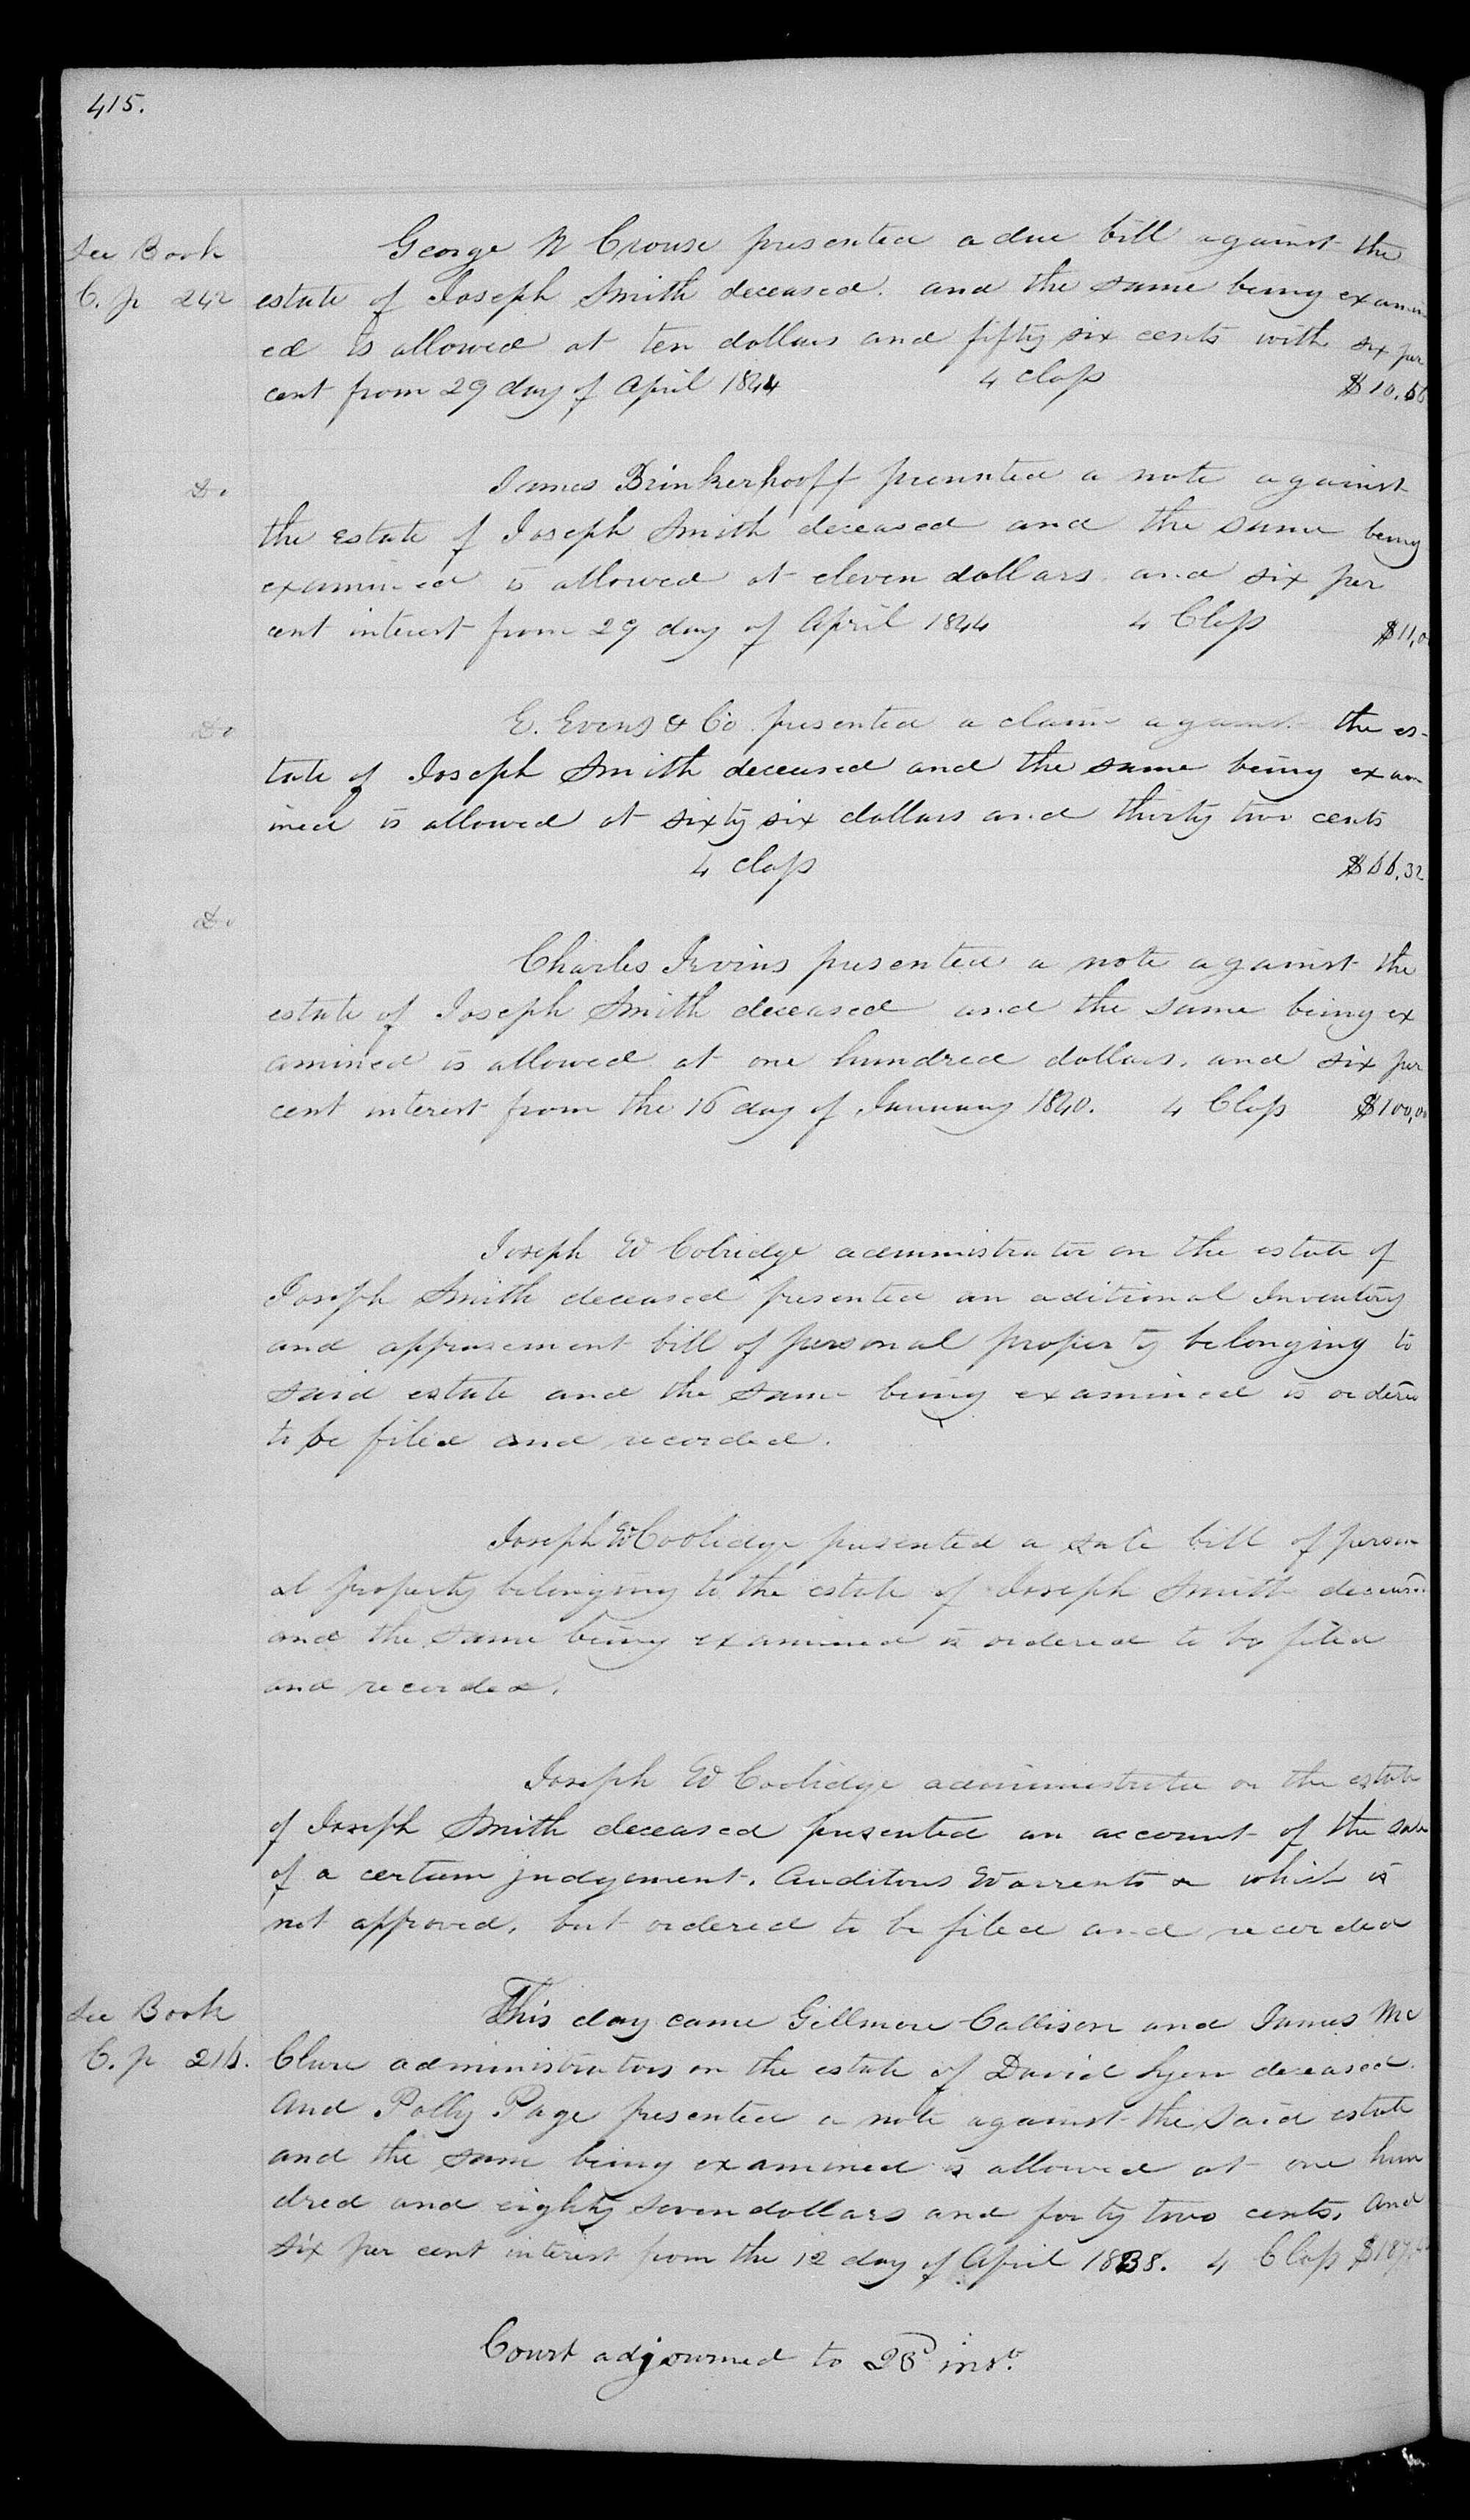 415.
See Book
C. p 242
George W Crouse presented a due bill against the
estate of Joseph Smith deceased. and the same being examin
ed is allowed at ten dollars and fifty six cents with six per
cent from 29 day of April 1844 4 class $10.56
Do
James Brinkerhooff presented a note against
the estate of Joseph Smith deceased and the same being
examined is allowed at eleven dollars and six per
cent interest from 29 day of April 1844 4 Class $11,0
Do
E. Evens & Co presented a claim against the es-
tate of Joseph Smith deceased and the same being exam
ined is allowed at sixty six dollars and thirty two cents
4 class $66.32
Do
Charles Irvins presented a note against the
estate of Joseph Smith deceased and the same being ex
amined is allowed at one hundred dollars. and six per
cent interest from the 16 day of January 1840. 4 Class $100,00
Joseph W Colridge administrator on the estate of
Joseph Smith deceased presented an aditional Inventory
and apprasement bill of personal property belonging to
said estate and the same being examined is ordered
to be filed and recorded.
Joseph W Coolidge presented a sale bill of person
al property belonging to the estate of Joseph Smith deceased
and the same being examined is ordered to be filed
and recorded.
Joseph W Coolidge administrator on the estate
of Joseph Smith deceased presented an account of the sale
of a certain judgement. Auditors Warrents & which is
not approved, but ordered to be filed and recorded
See Book
C. p 216.
This day came Gillmore Callison and James Mc
Clure administrators on the estate of David Lyon deceased.
And Polly Page presented a note against the said estate
and the same being examined is allowed at one hun
dred and eighty seven dollars and forty two cents, and
six per cent interest from the 12 day of April 1838. 4 Class $187.42
Court adjourned to inst.